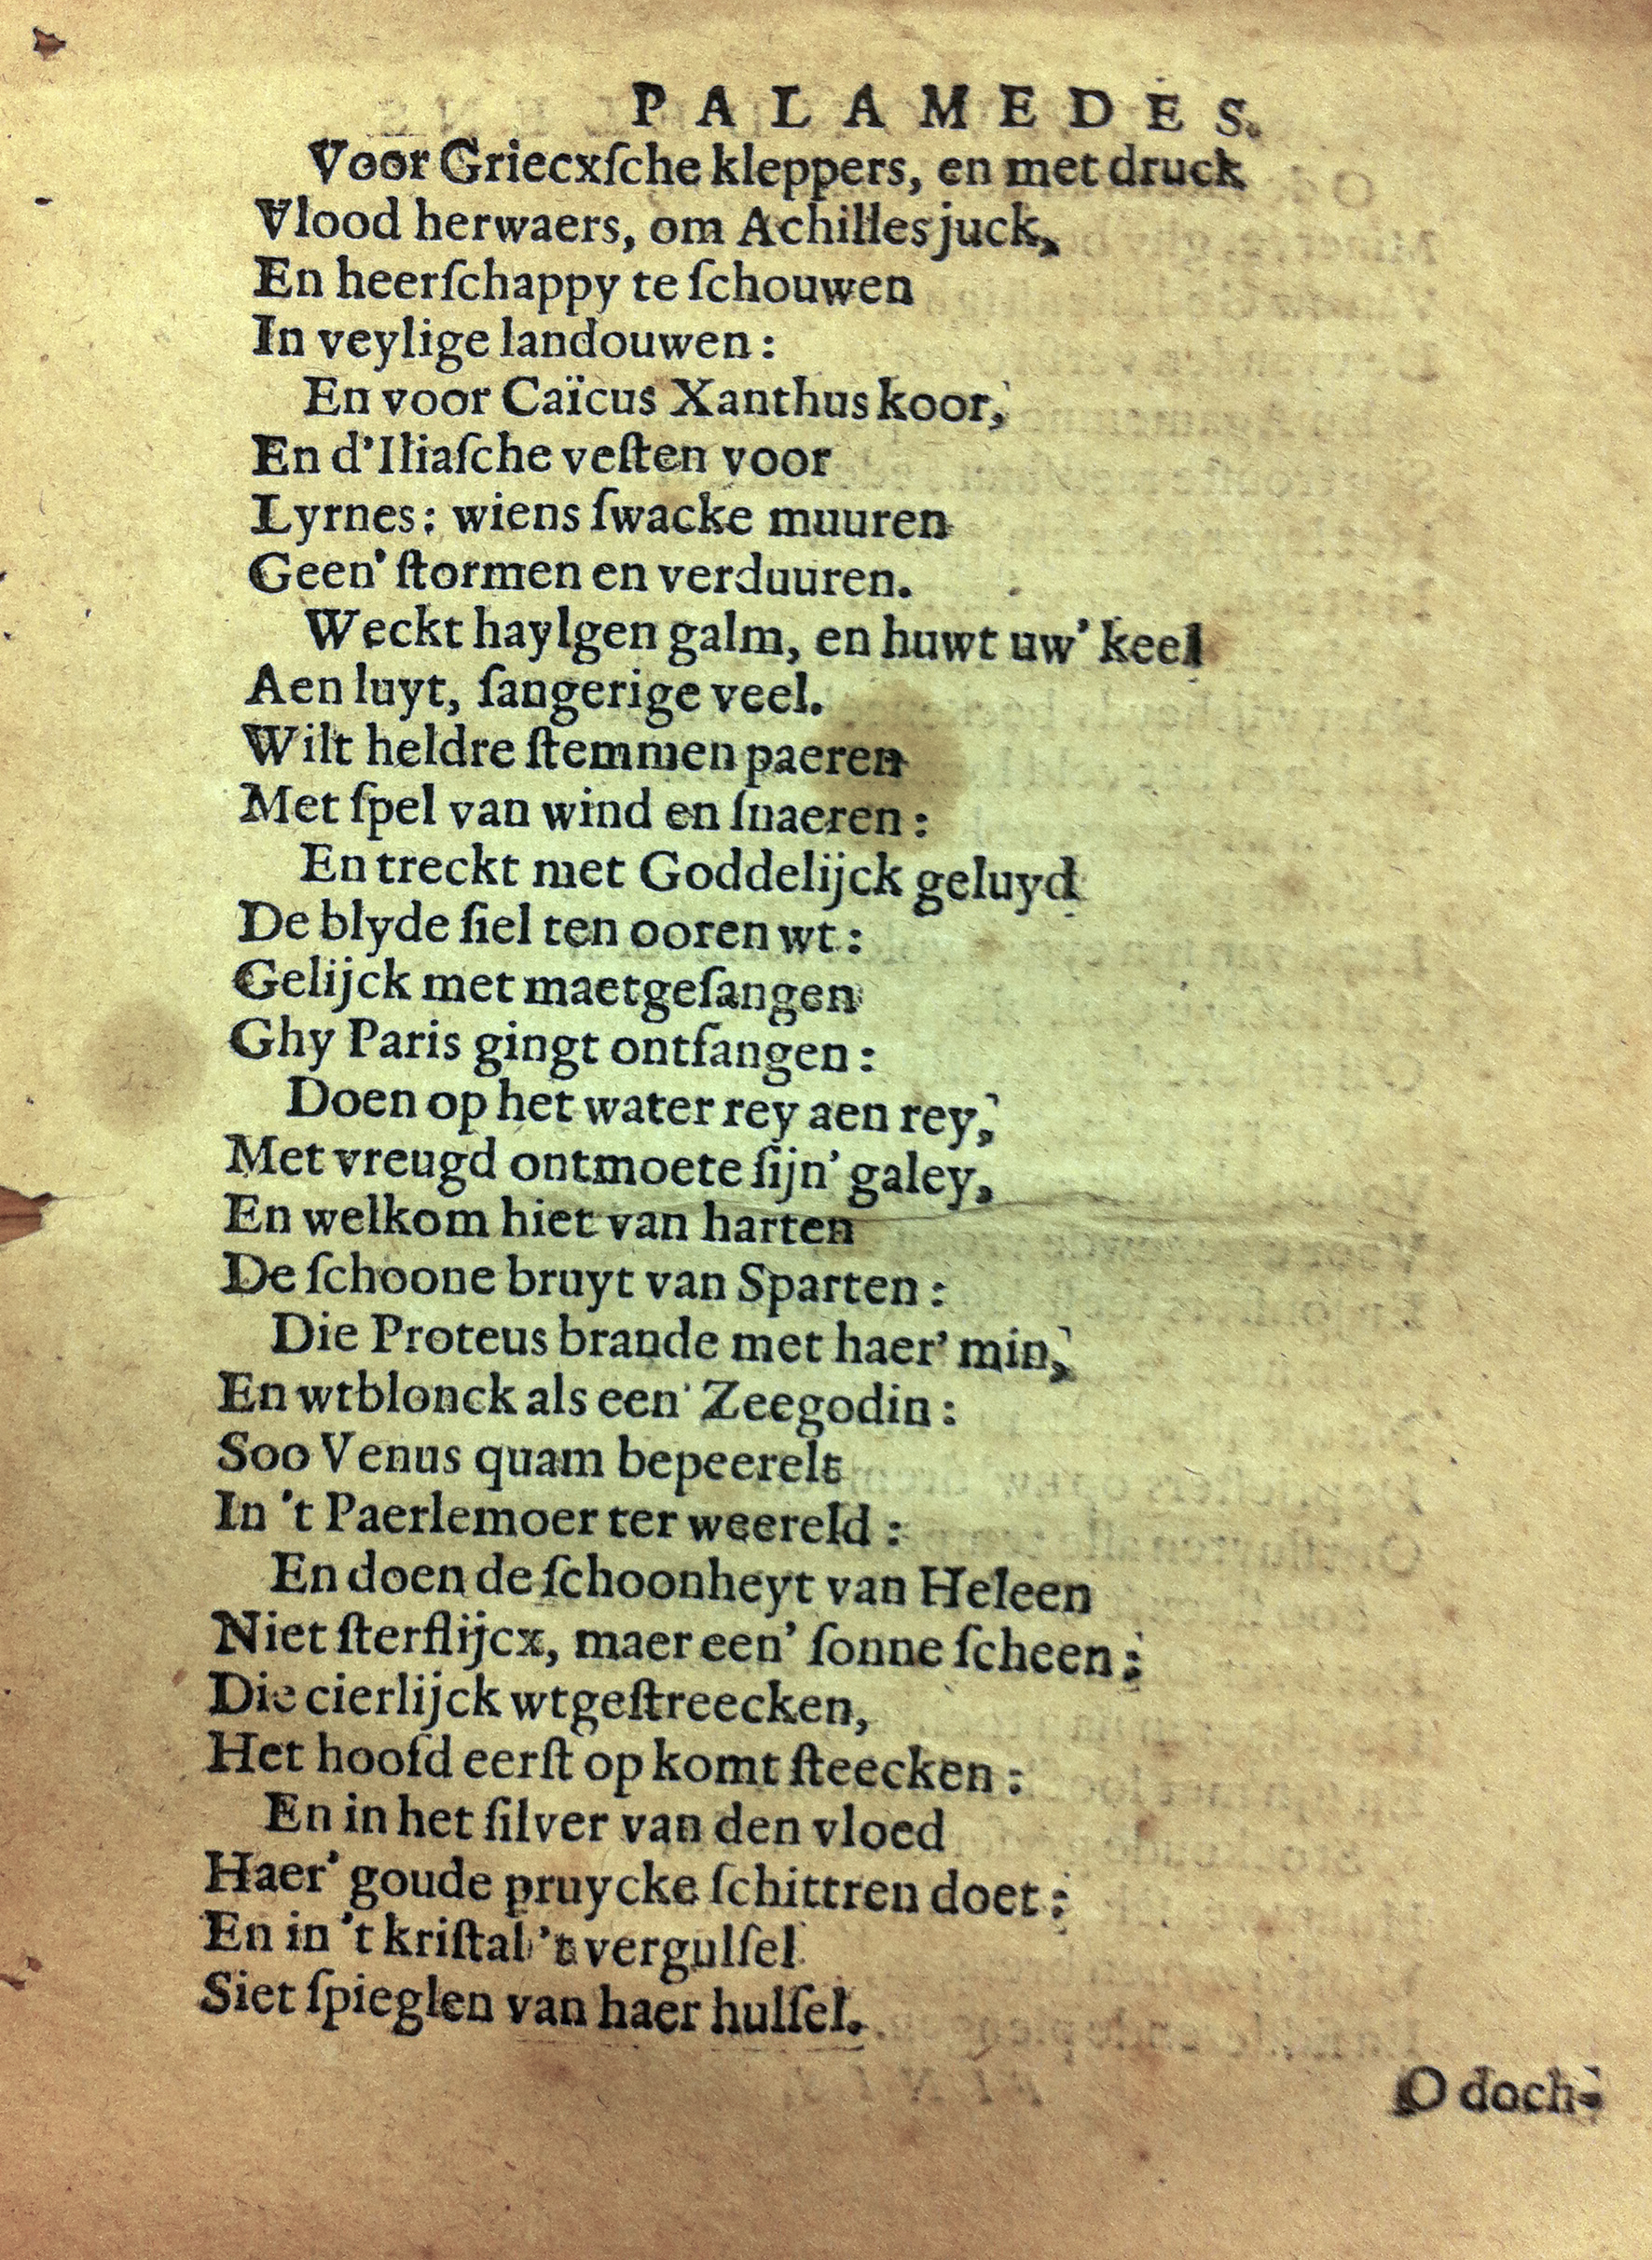 PALAMEDES.
Voor Griecxſche kleppers, en met druck
Vlood herwaers, om Achilles juck,
En heerſchappy te ſchouwen
In veylige landouwen:
En voor Caïcus Xanthus koor,
En d'Iliaſche veſten voor
Lyrnes: wiens ſwacke muuren
Geen' ſtormen en verduuren.
Weckt haylgen galm, en huwt uw' keel
Aen luyt, ſangerige veel.
Wilt heldre ſtemmen paeren
Met ſpel van wind en ſnaeren:
En treckt met Goddelijck geluyd
De blyde ſiel ten ooren wt:
Gelijck met maetgeſangen
Ghy Paris gingt ontfangen:
Doen op het water rey aen rey,
Met vreugd ontmoete ſijn' galey,
En welkom hiet van harten
De ſchoone bruyt van Sparten:
Die Proteus brande met haer' min,
En wtblonck als een' Zeegodin:
Soo Venus quam bepeerelt
In 't Paerlemoer ter weereld:
En doen de ſchoonheyt van Heleen
Niet ſterflijcx, maer een' ſonne ſcheen:
Die cierlijck wtgeſtreecken,
Het hoofd eerſt op komt ſteecken:
En in het ſilver van den vloed
Haer' goude pruycke ſchittren doet:
En in 't kriſtal 't vergulſel
Siet ſpieglen van haer hulſel.
O doch-